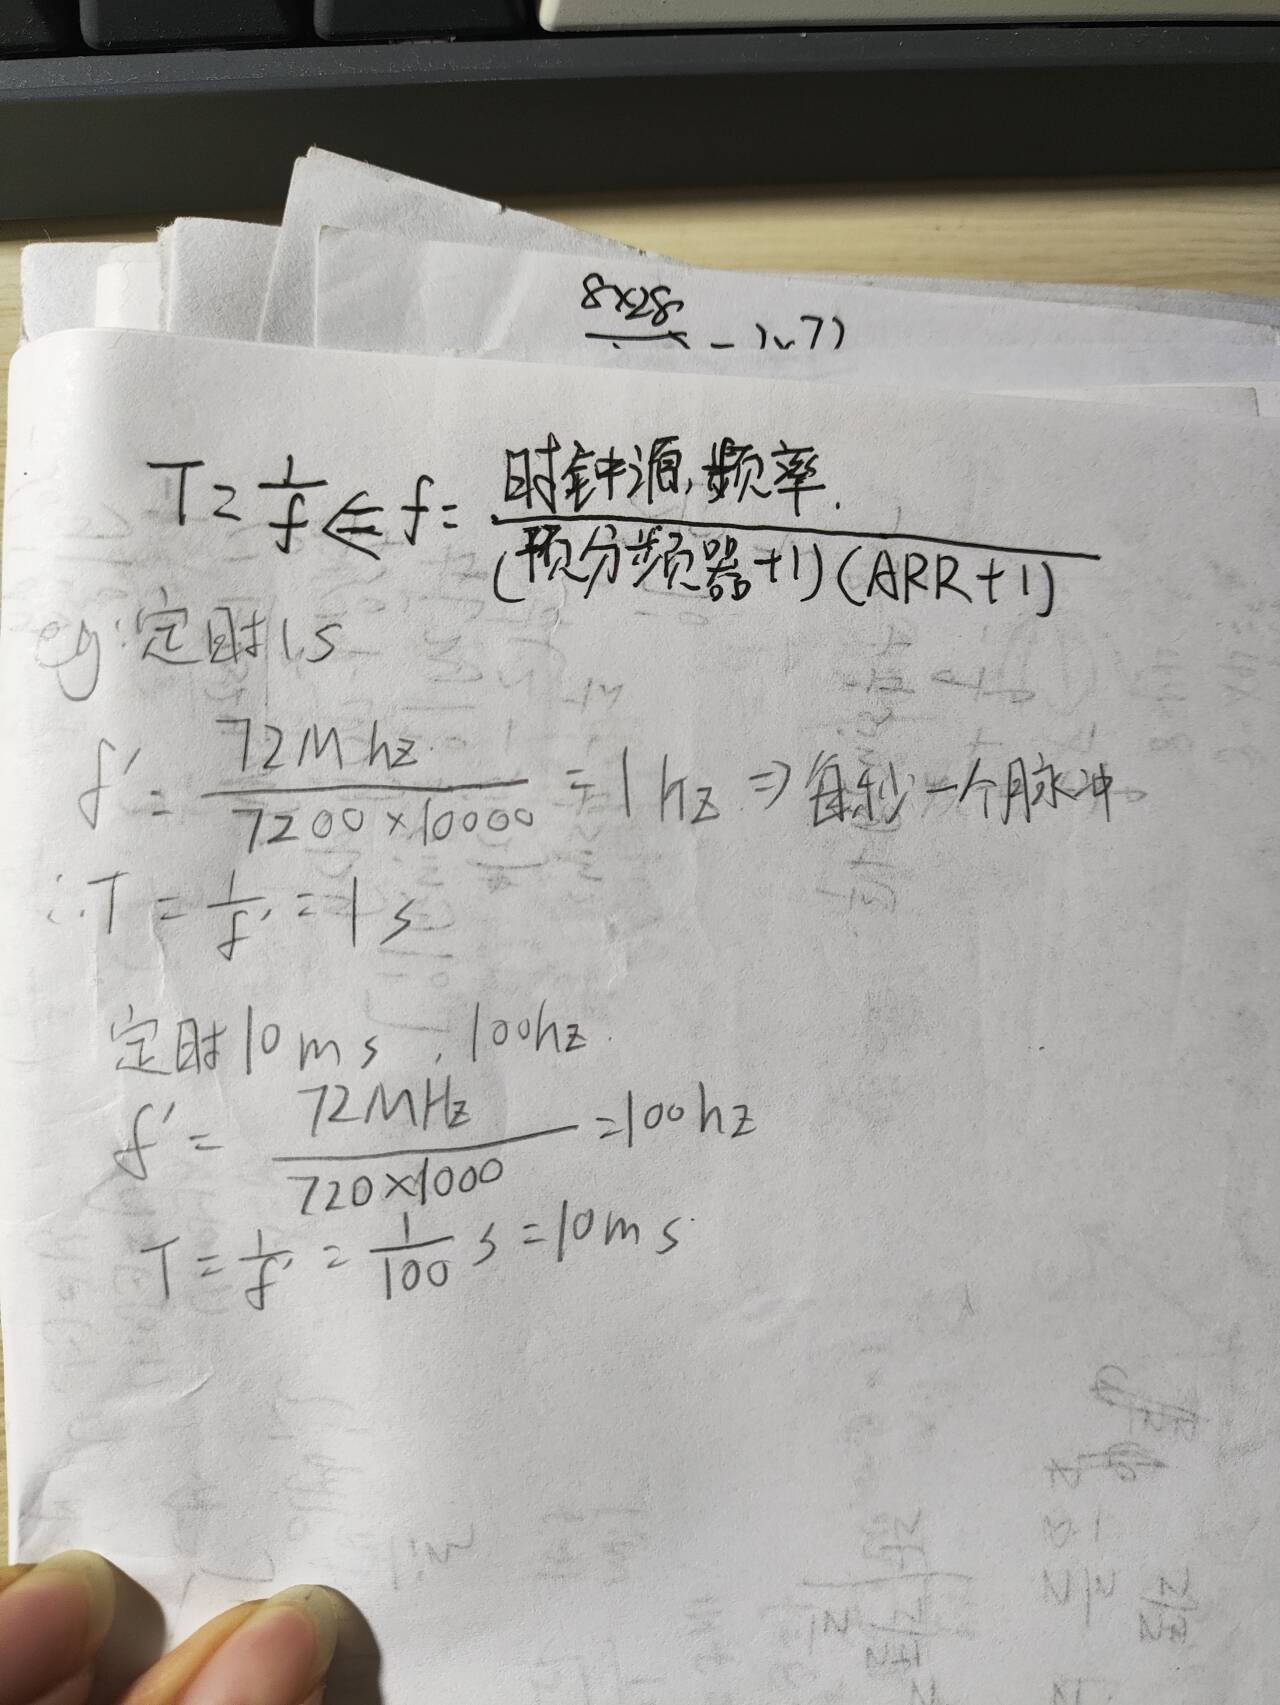 8×28
T = 1/f ⇐ f = 时钟源频率. / (预分频器+1)(ARR+1)
eg: 定时1s
f' = 72Mhz / 7200×10000 = 1hz ⇒ 每秒一个脉冲
∴ T = 1/f' = 1s
定时10ms, 100hz.
f' = 72MHz / 720×1000 = 100hz
T = 1/f' = 1/100 s = 10ms